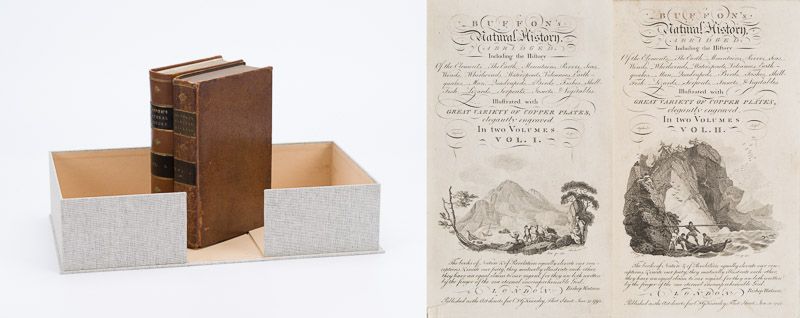 BUFFON's
Natural History,
ABRIDGED.
Including the History
Of the Elements, The Earth, Mountains, Rivers, Seas,
Winds, Whirlwinds, Waterspouts, Volcanoes, Earth-
quakes, Man, Quadrupeds, Birds, Fishes, Shell-
Fish, Lizards, Serpents, Insects, & Vegetables.
Illustrated with
GREAT VARIETY OF COPPER PLATES,
elegantly engraved.
In two VOLUMES
VOL. I.
The books of Nature & of Revelation equally elevate our con-
ceptions, & invite our piety; they mutually illustrate each other;
they have an equal claim to our regard, for they are both written
by the finger of the one eternal incomprehensible God.
Bishop Watson.
LONDON
Published as the Act directs for C & G Kearsley, Fleet Street, June
BUFFON's
Natural History,
ABRIDGED.
Including the History
Of the Elements, The Earth, Mountains, Rivers, Seas,
Winds, Whirlwinds, Waterspouts, Volcanoes, Earth-
quakes, Man, Quadrupeds, Birds, Fishes, Shell-
Fish, Lizards, Serpents, Insects, & Vegetables.
Illustrated with
GREAT VARIETY OF COPPER PLATES,
elegantly engraved.
In two VOLUMES
VOL. II.
The books of Nature & of Revelation equally elevate our con-
ceptions, & invite our piety; they mutually illustrate each other;
they have an equal claim to our regard, for they are both written
by the finger of the one eternal incomprehensible God.
Bishop Watson.
LONDON
Published as the Act directs for C & G Kearsley, Fleet Street, June